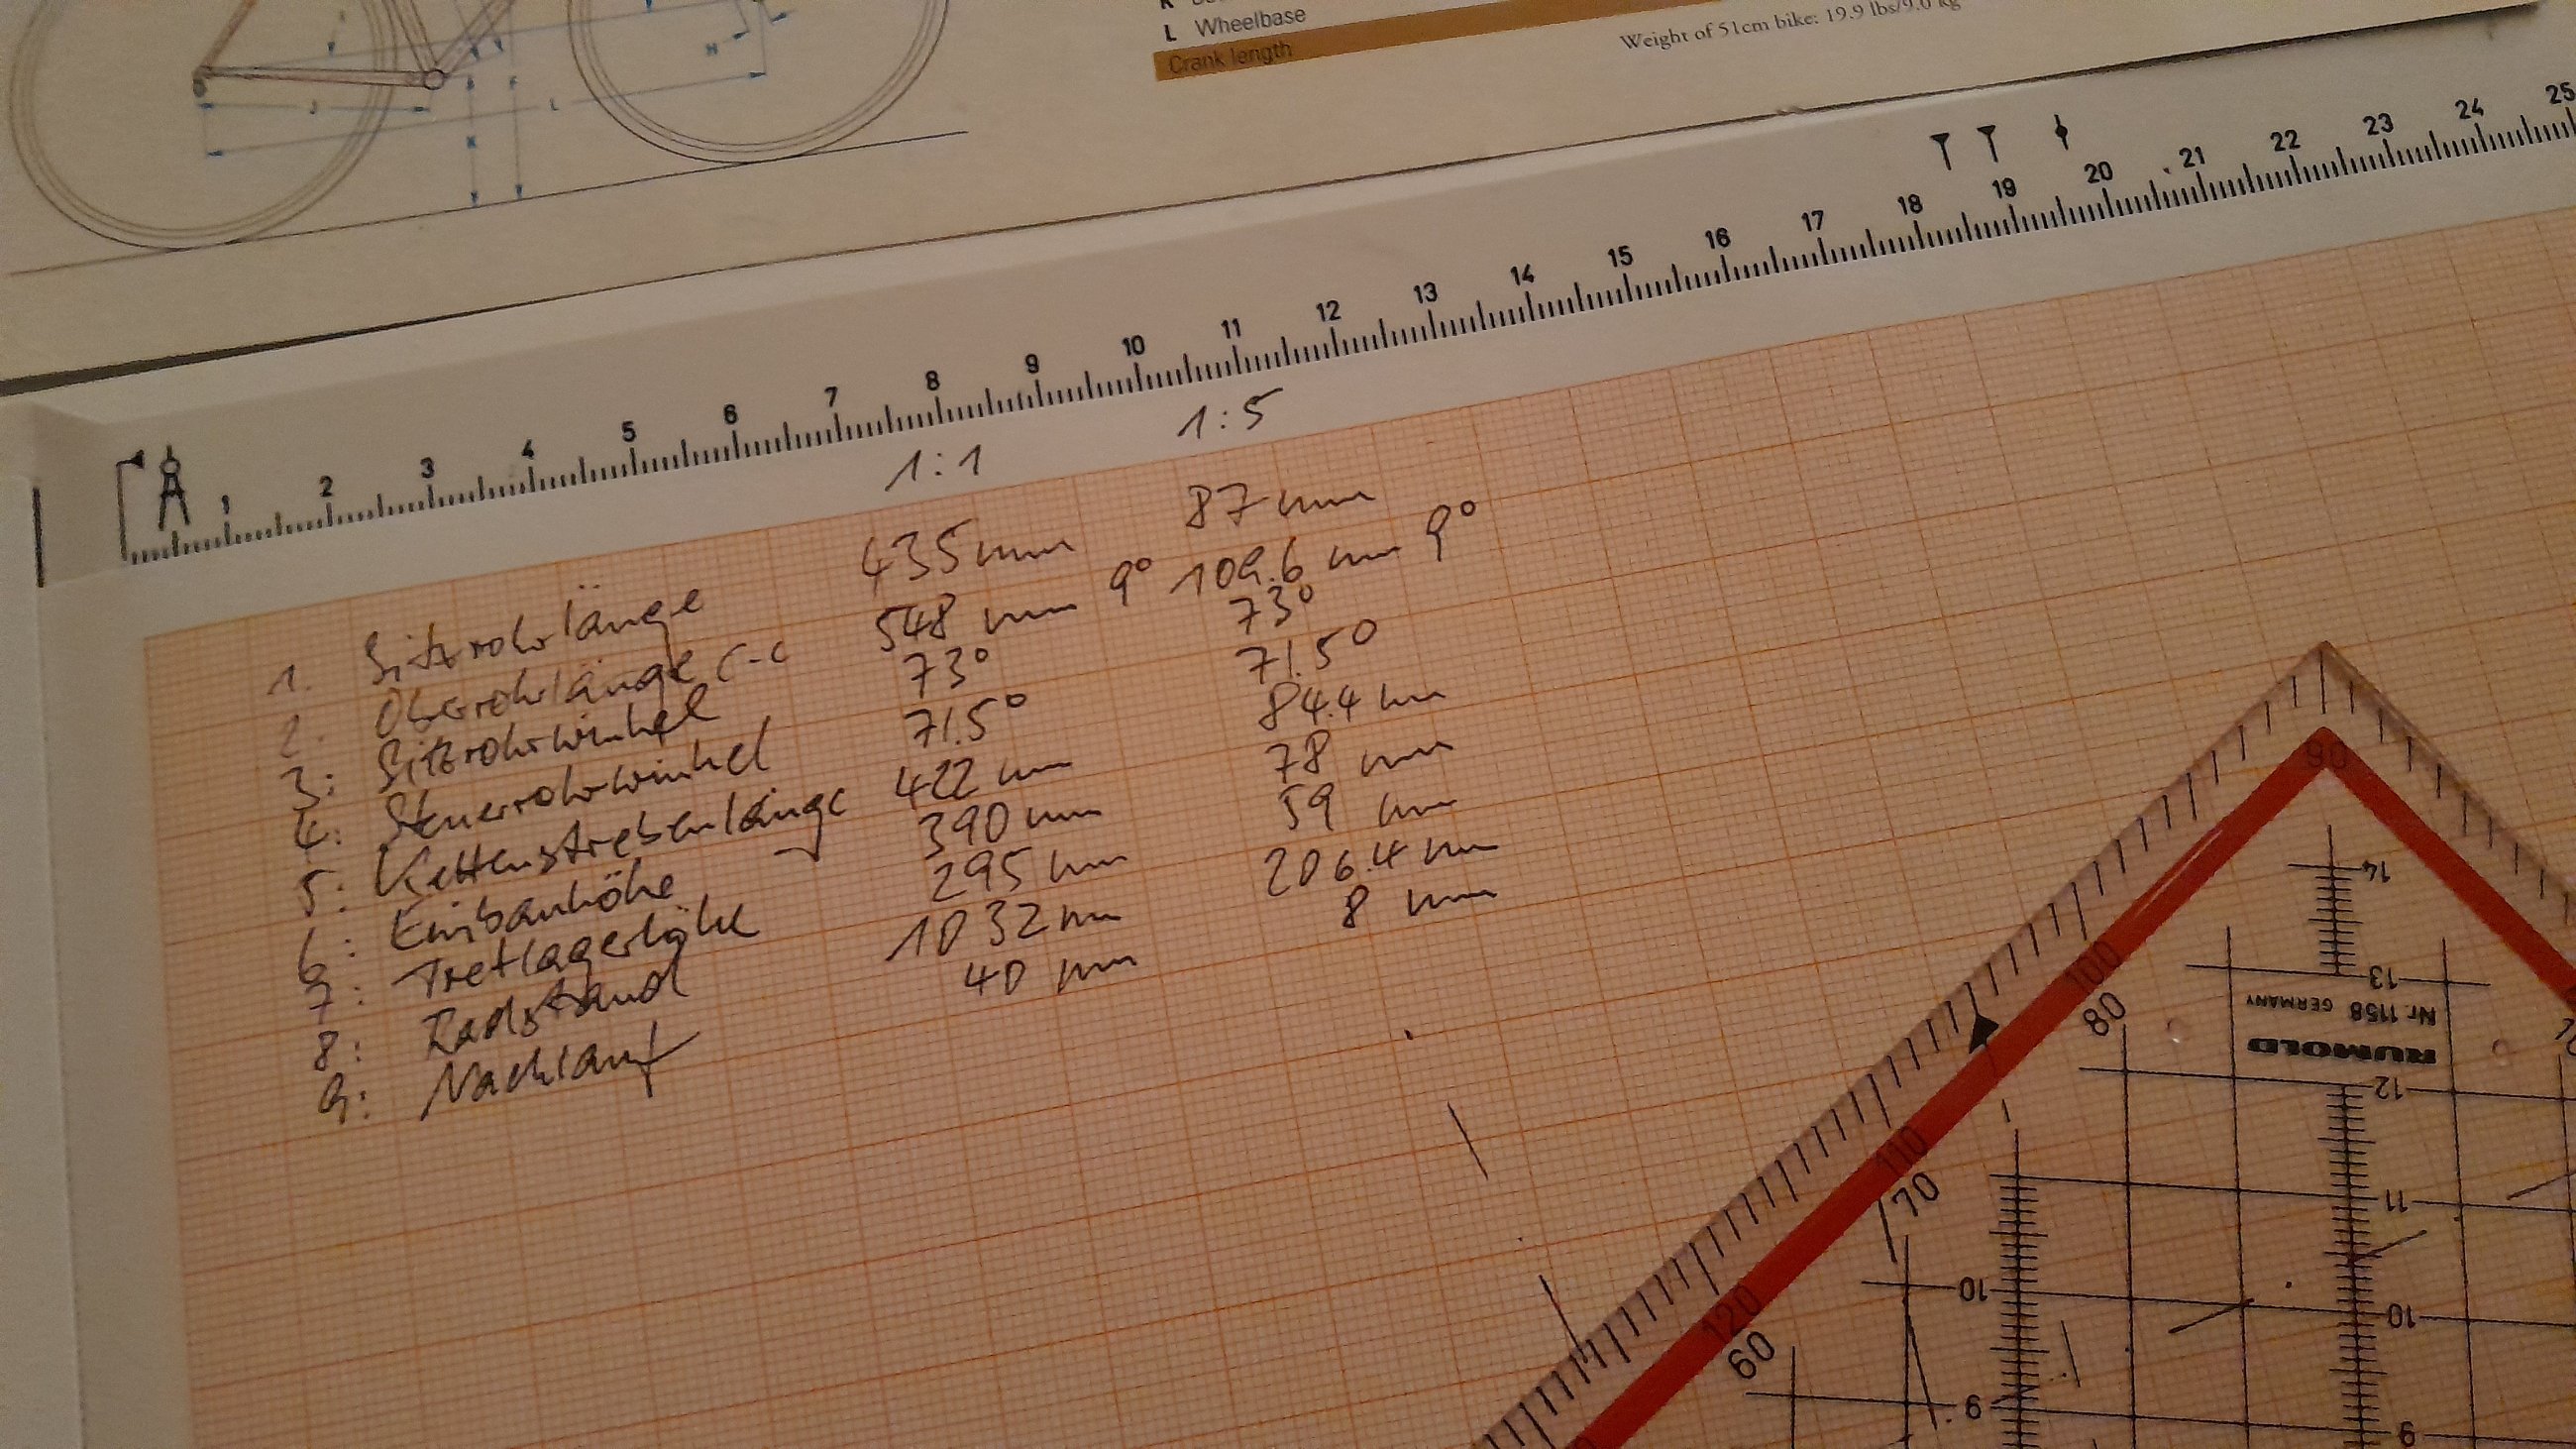 L Wheelbase
Crank length
Weight of 51cm bike: 19.9 lbs/9.0 kg
1 2 3 4 5 6 7 8 9 10 11 12 13 14 15 16 17 18 19 20 21 22 23 24 25
1:1 1:5
1. Sitzrohrlänge 435 mm 87 mm
2. Oberrohrlänge c-c 548 mm 9° 109.6 mm 9°
3: Sitzrohrwinkel 73° 73°
4: Steuerrohrwinkel 71.5° 71.5°
5: Kettenstrebenlänge 422 mm 84.4 mm
6: Einbauhöhe 390 mm 78 mm
7: Tretlagerhöhe 295 mm 59 mm
8: Radstand 1032 mm 206.4 mm
9: Nachlauf 40 mm 8 mm
90
14
13
Nr. 1158 GERMANY
RUMOLD
12
100
80
11
110
70
10
10
120
60
9
9
J
L
K
F
H